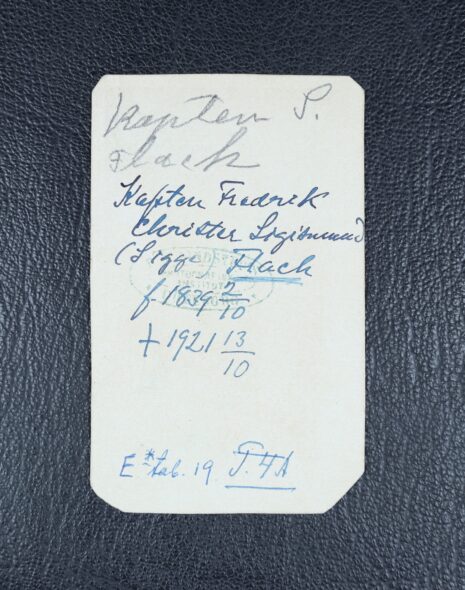 Kapten S.
Flach
Kapten Fredrik
Christer Sigismund
(Sigge) Flach
f 1839 2/10
† 1921 13/10
E* tab. 19. T.4A